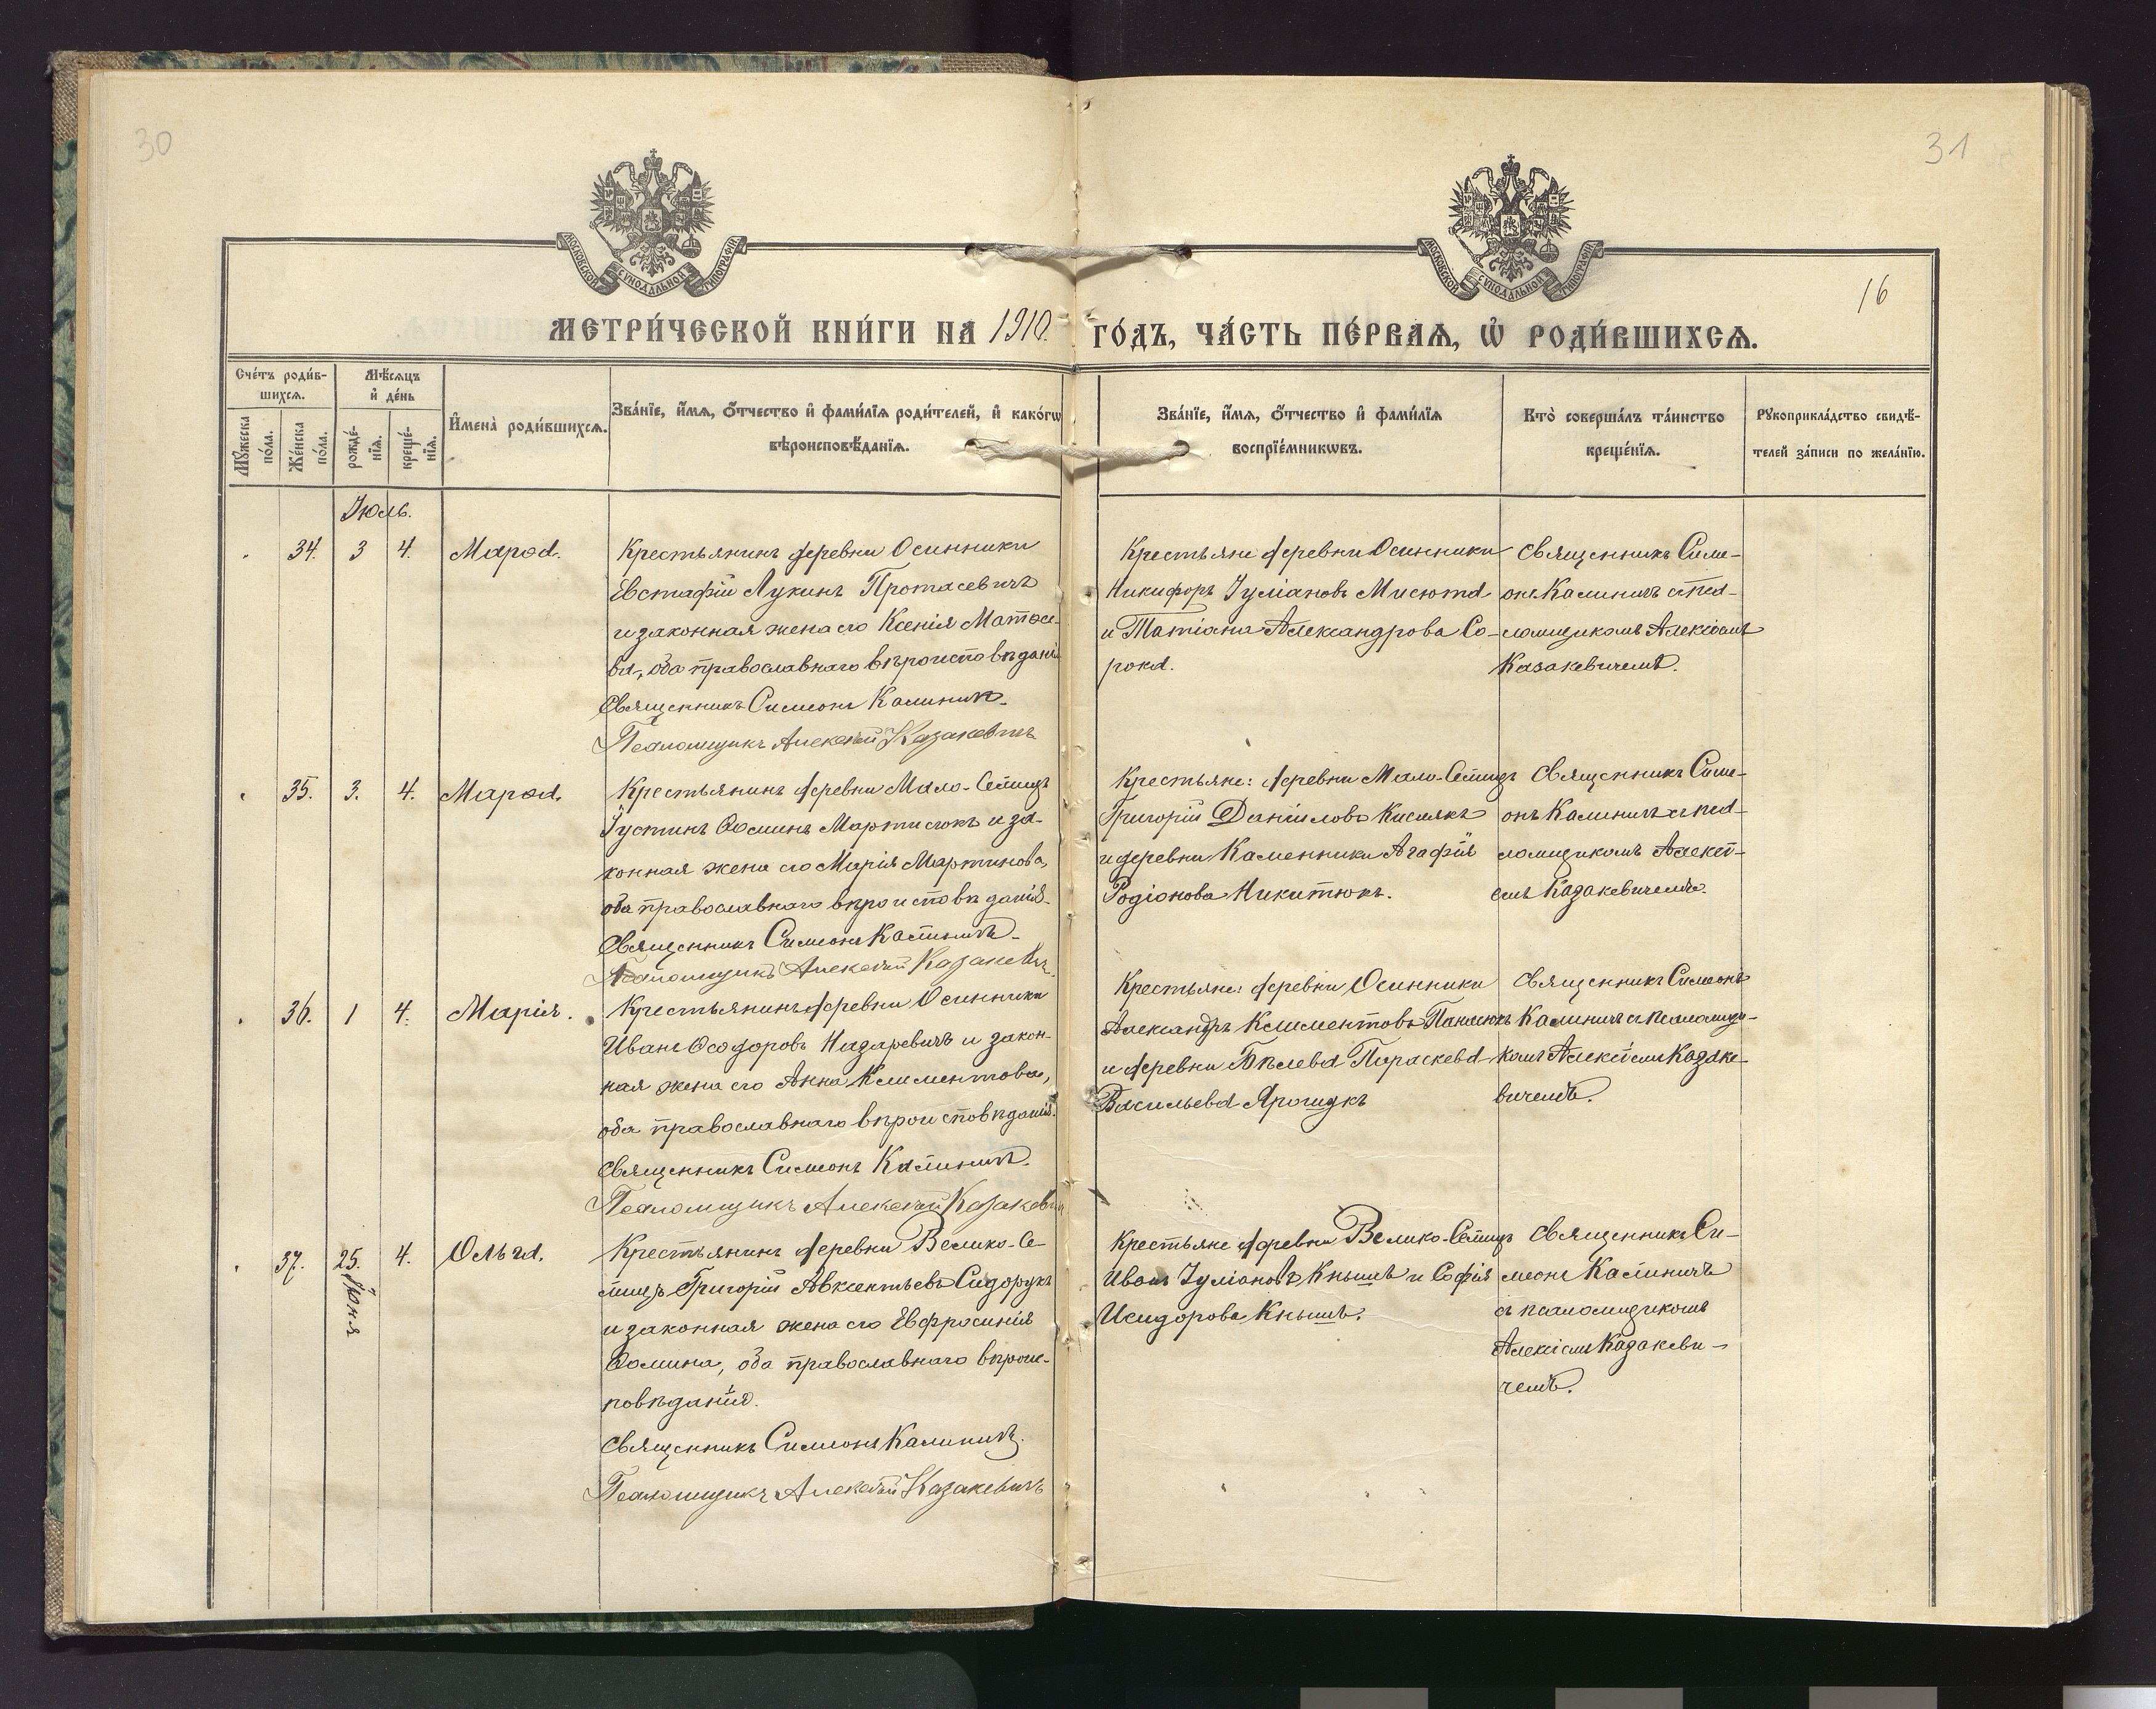 30
31
МОСКОВСКОЙ СѴНОДАЛЬНОЙ ТИПОГРАФІИ
МОСКОВСКОЙ СѴНОДАЛЬНОЙ ТИПОГРАФІИ
16
МЕТРИ́ЧЕСКОЙ КНИ́ГИ НА 1910. ГО́ДЪ, ЧА́СТЬ ПЕ́РВАѦ, Ѡ҆ РОДИ́ВШИХСѦ.
Сче́тъ роди́в-
шихсѧ.
Мꙋ́жеска
по́ла.
Же́нска
по́ла.
Мѣ́сѧцъ
и҆ де́нь
рожде́-
нїѧ.
креще́-
нїѧ.
И҆мена̀ роди́вшихсѧ.
Зва́нїе, и҆́мѧ, ѻ҆́тчество и҆ фами́лїѧ роди́телей, и҆ како́гѡ
вѣроисповѣ́данїѧ.
Зва́нїе, и҆́мѧ, ѻ҆́тчество и҆ фами́лїѧ
воспрїе́мникѡвъ.
Кто̀ соверша́лъ та́инство
креще́нїѧ.
Рꙋкоприкла́дство свидѣ́-
телей за́писи по жела́нїю.
Іюль.
34. 3 4. Мароа.
Крестьянинъ деревни Осинники
Евстафій Лукинъ Протасевичъ
и законная жена его Ксенія Матѳее-
ва, оба православнаго вѣроисповѣданія
Священникъ Симеонъ Калиничъ.
Псаломщикъ Алексѣй Казакевичъ
Крестьяне деревни Осинники
Никифоръ Іуліановъ Мисюта
и Татіана Александрова Со-
рока.
Священникъ Симе-
онъ Калиничъ съ пса-
ломщикомъ Алексіемъ
Казакевичемъ.
35. 3. 4. Мароа.
Крестьянинъ деревни Мало-Семицъ
Іустинъ Ѳоминъ Мартисюкъ и за-
конная жена его Марія Мартинова,
оба православнаго вѣроисповѣданія.
Священникъ Симеонъ Калиничъ.
Псаломщикъ Алексѣй Казакевичъ.
Крестьяне: деревни Мало-Семицъ
Григорій Даніиловъ Кислякъ
и деревни Каменники Агафія
Родіонова Никитюкъ.
Священникъ Симе-
онъ Калиничъ съ пса-
ломщикомъ Алексі-
емъ Казакевичемъ.
36. 1 4. Марія.
Крестьянинъ деревни Осинники
Иванъ Ѳеодоровъ Назаревичъ и закон-
ная жена его Анна Климентова,
оба православнаго вѣроисповѣданія.
Священникъ Симеонъ Калиничъ.
Псаломщикъ Алексѣй Казакевичъ
Крестьяне: деревни Осинники
Александръ Климентовъ Панасюкъ
и деревни Бѣлева Параскева
Васильева Ярощукъ
Священникъ Симеонъ
Калиничъ съ псаломщи-
комъ Алексіемъ Казаке-
вичемъ.
37. 25. Іюня 4. Ольга.
Крестьянинъ деревни Велико-Се-
мицъ Григорій Авксентьевъ Сидорукъ
и законная жена его Евфросинія
Ѳомина, оба православнаго вѣроис-
повѣданія.
Священникъ Симеонъ Калиничъ.
Псаломщикъ Алексѣй Казакевичъ
Крестьяне деревни Велико-Семицъ
Иванъ Іуліановъ Кнышъ и Софія
Исидорова Кнышъ.
Священникъ Си-
меонъ Калиничъ
съ псаломщикомъ
Алексіемъ Казакеви-
чемъ.